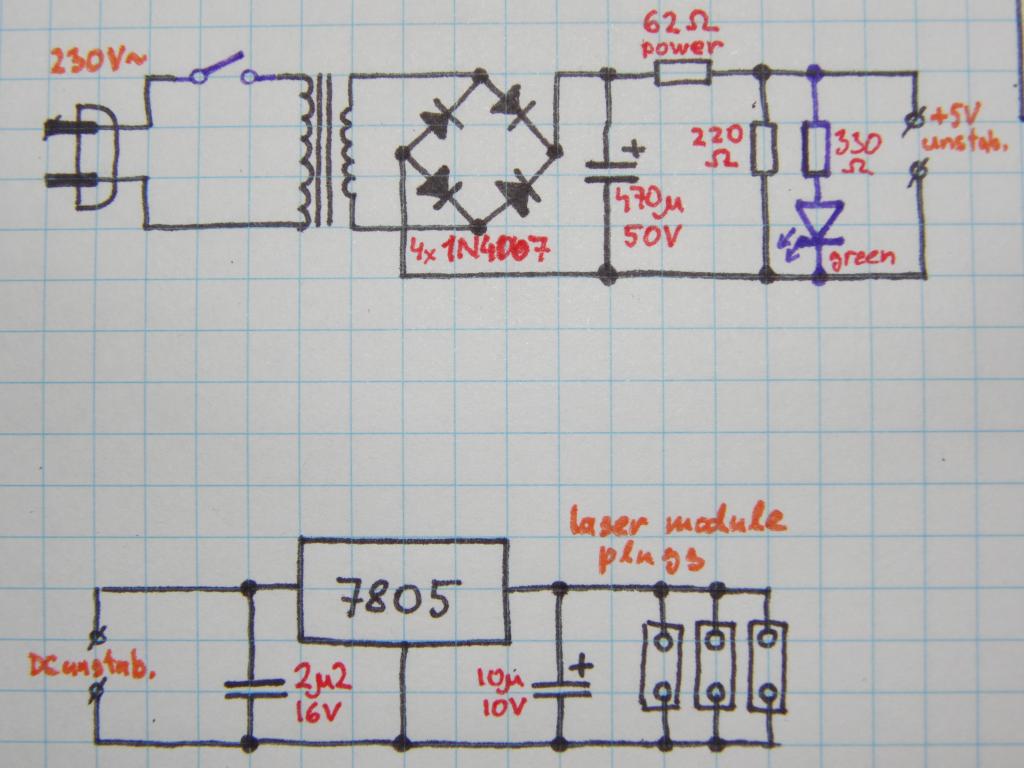 230V~
62Ω
power
220
Ω
330
Ω
+5V
unstab.
+
470µ
50V
4x 1N4007
green
laser module
plugs
7805
DC unstab.
2µ2
16V
10µ
10V
+